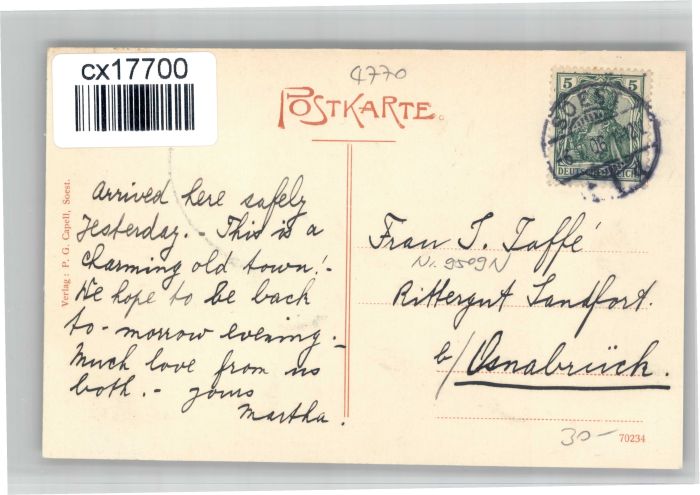 cx17700
4770
POSTKARTE.
5 5
DEUTSCHES REICH
SOEST
Verlag: P. G. Capell, Soest.
Arrived here safely
Yesterday. - This is a
charming old town! -
We hope to be back
to-morrow evening. -
Much love from us
both. - yours
Martha.
Frau I. Jaffé
Nr. 9509N
Rittergut Sandfort.
b/ Osnabrück.
30-
70234